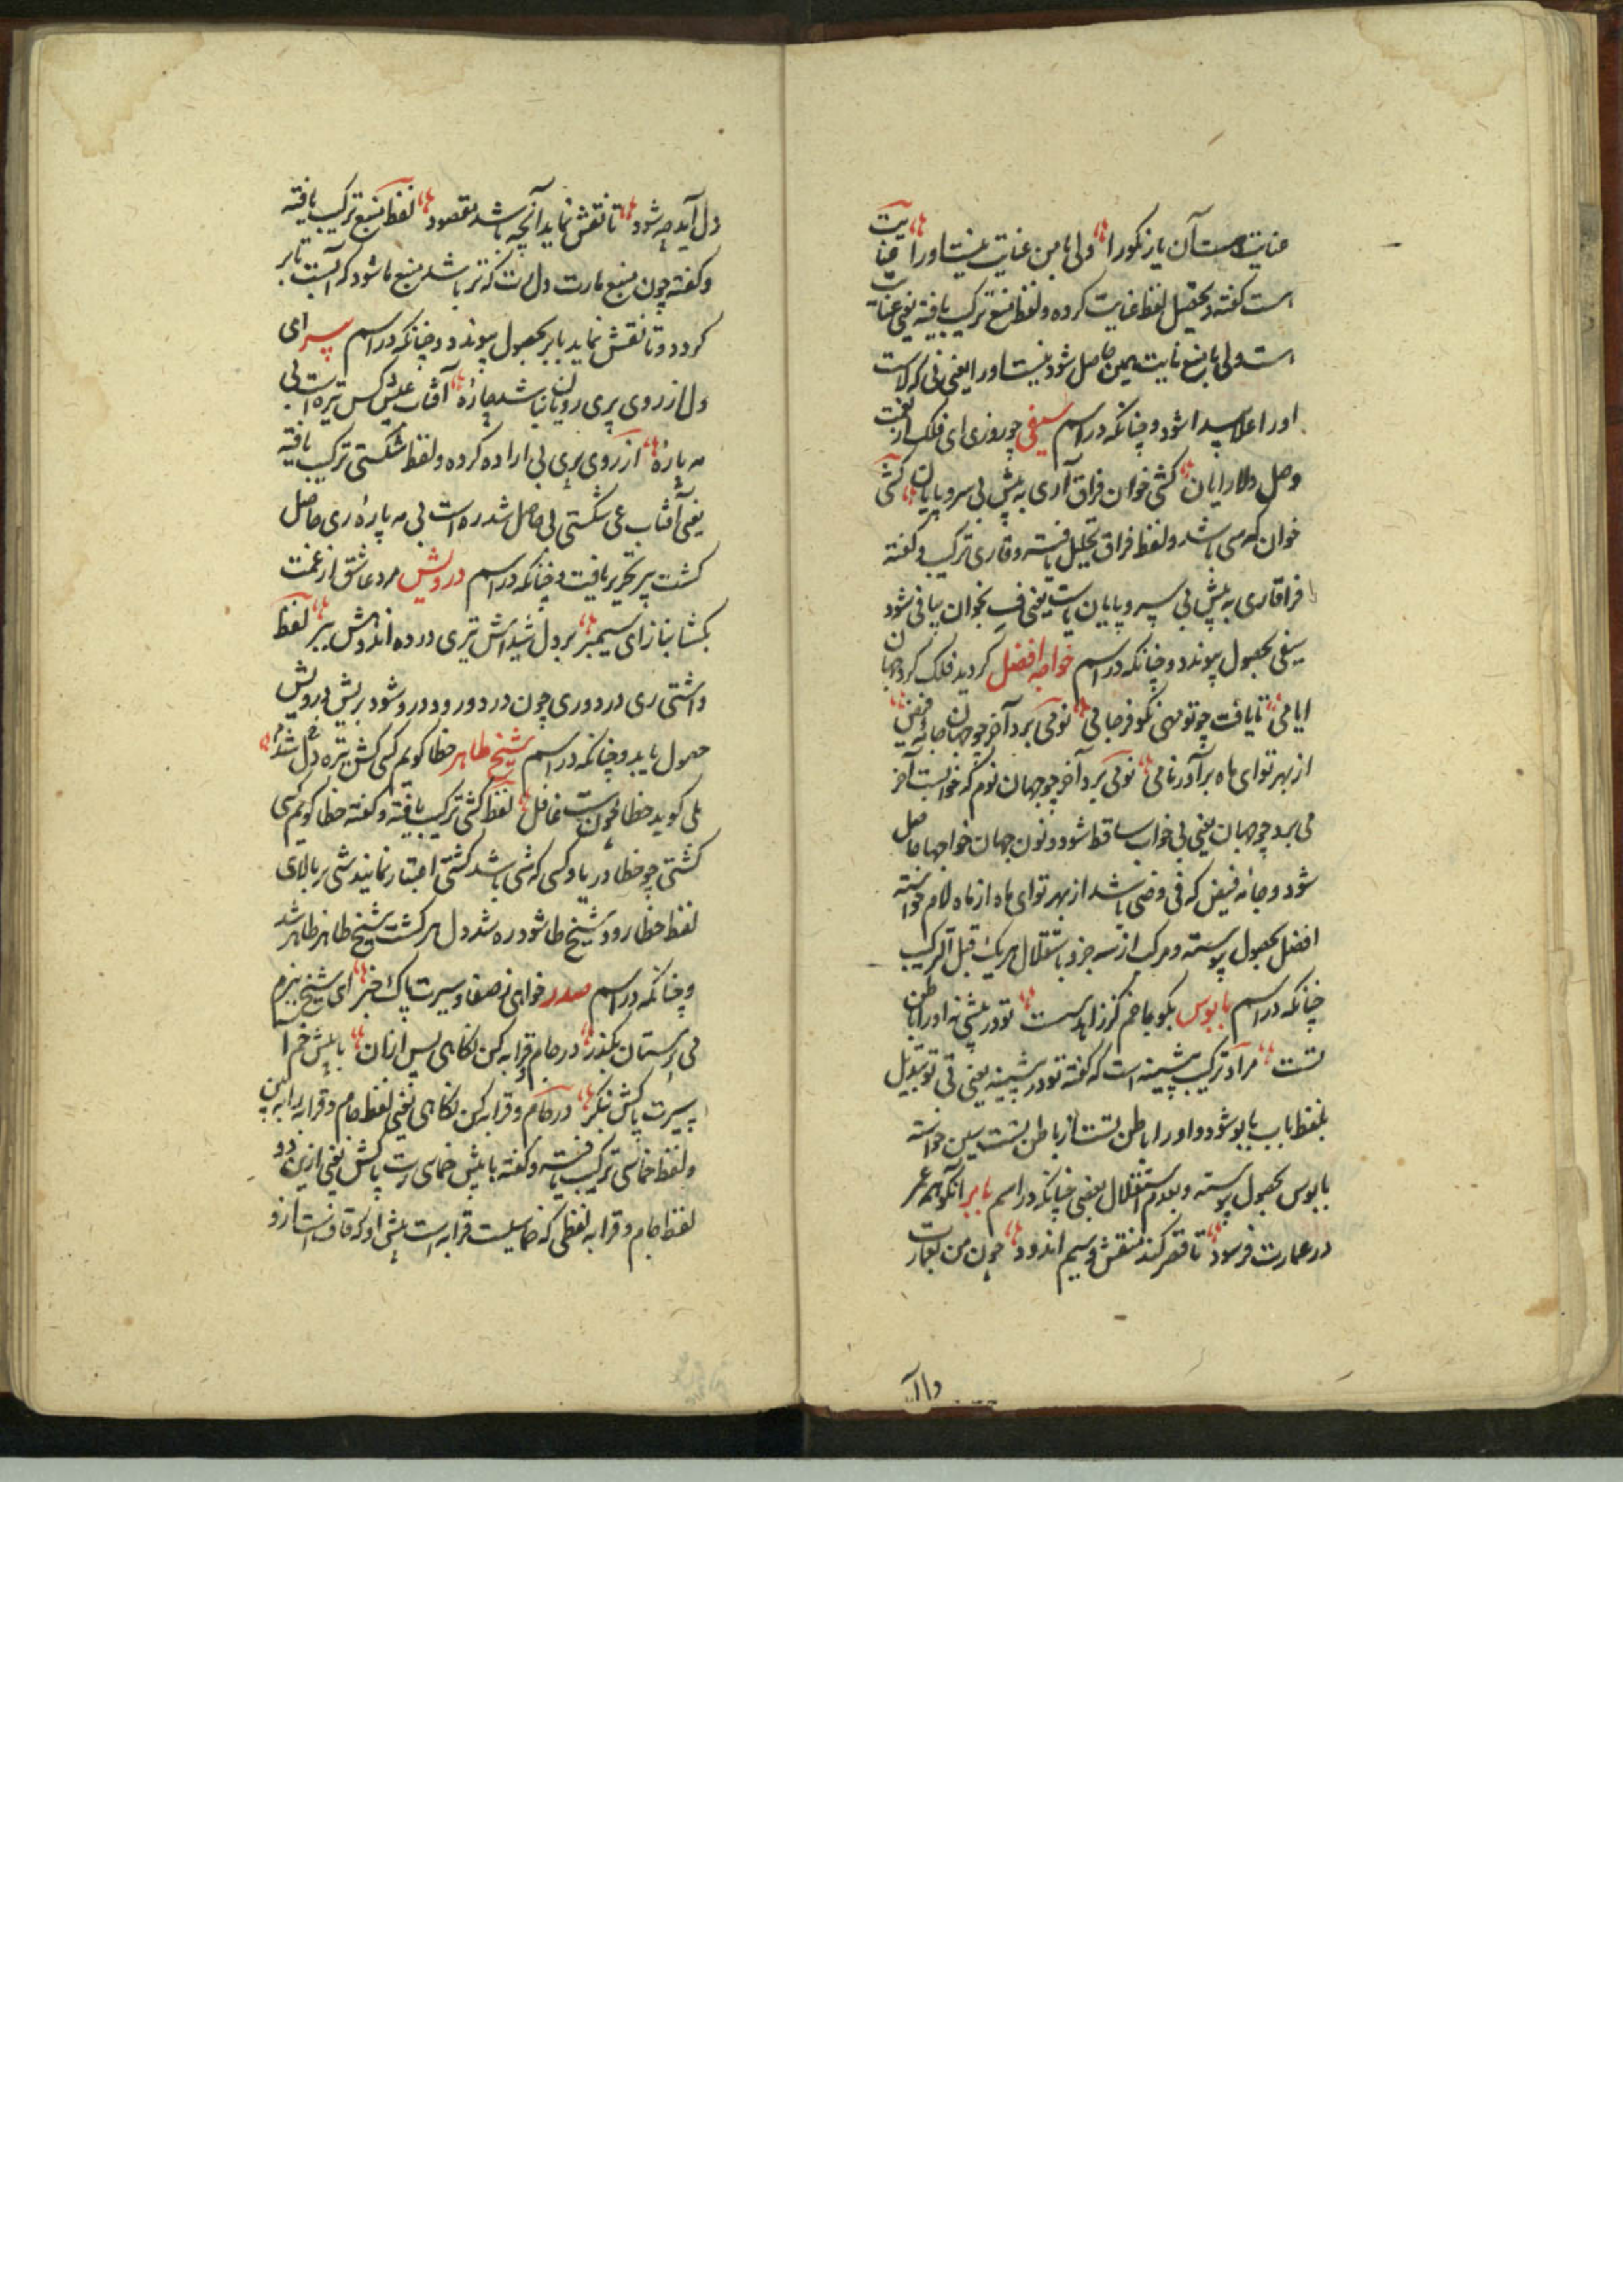 عنایت هست آن یار نکو را ولی با من عنایت نیست او را عنایت
است گفته و تحصیل لفظ عنایت کرده و لفظ منع ترکیب یافته یعنی عنایت
است ولی با منع نایت همین حاصل شود نیست او را یعنی نی که لاست
او را علا پیدا شود و چنانکه در اسم سیفی چو روزی ای فلک از نعمت
وصل دلارایان کشی خوان فراق آری به پیش بی سر و پایان کشی
خوان که سی باشد و لفظ فراق تحلیل یافته و قاری ترکیب و گفته
فراقاری به پیش بی سر و پایان است یعنی ف بخوان بیا فی شود
سیفی بحصول پیوندد و چنانکه در اسم خواجه افضل گردید فلک گرد جهان
ایامی تا یافت چو تو مهی نکو فرجامی نومی برد آخر چو جهان جامه فیض
از بهر تو ای ماه برآورد نامی نومی برد آخر چو جهان نوم که خوابست آخر
می برد چو جهان یعنی بی خواب ساقط شود و نون جهان خواجها حاصل
شود و جامه فیض که فی و ضی باشد از بهر تو ای ماه از ماه لام خواسته
افضل بحصول پیوسته و مرکب از سه جزو باستقلال هر یک قبل الترکیب
چنانکه در اسم بابوس بگو با خم گرز اهدست تو در پشمینه او را باطن
تست مراد ترکیب پشمینه است که گفته تو در پشمینه یعنی تی تو تبدیل
بلفظ باب بابو شود و او را باطن تست از باطن تست سین خواسته
بابوس بحصول پیوسته و بعدم استقلال بعضی چنانکه در اسم بابر آنکو همه عمر
در عمارت فرسود تا قصر کند منقش و سیم اندود چون من بعمارت
دل آید چه شود تا نقش نماید آنچه باشد مقصود لفظ منبع ترکیب یافته
و گفته چون منبع مارت دل است که تر باشد منبع ما شود که آبست تابر
گردد و تا نقش نماید بابر بحصول پیوندد و چنانکه در اسم سرای
دل از روی پری رویان نباشد چاره آفتاب عیش کس تیره است بی
مه پاره از روی پری بی اراده کرده و لفظ شکستی ترکیب یافته
یعنی آفتاب عی شکستی بی حاصل شد ره است بی مه پاره ری حاصل
گشت پیر تحریر یافت و چنانکه در اسم درویش مرد عاشق از غمت
بگشا بناز ای سیمبر بر دل شیداش تیری در ده اندوهش ببر لفظ
داشتی ری در دوری چون در دور ود در و شود بریش درویش
حصول یابد و چنانکه در اسم شیخ طاهر خطا گویم کسی کش تیره دل شد
بلی گوید خطا چون هست غافل لفظ کشتی ترکیب یافته و گفته خطا گویم کسی
کشتی چو خطا دریا و کسی که شی باشد کشتی اعتبار نمایند شی بر بالای
لفظ خطا رود شیخ طا شود ره شد دل هر گشت شیخ طاهر ظاهر شد
و چنانکه در اسم صدر خواهی ز صفا و سیرت پاک خبر ای شیخ ببزم
می پرستان بگذر در جام و قرابه کن نگاهی پس از آن با پیش خم آ
سیرت پاکش بنگر در جام و قرابه کن نگاهی یعنی لفظ جام و قرابه را ببین
و لفظ خماسی ترکیب یافته و گفته با پیش خماسی رت پاکش یعنی ازین دو
لفظ جام و قرابه لفظی که خماسیست قرابه است پیش او که قاف است ازو